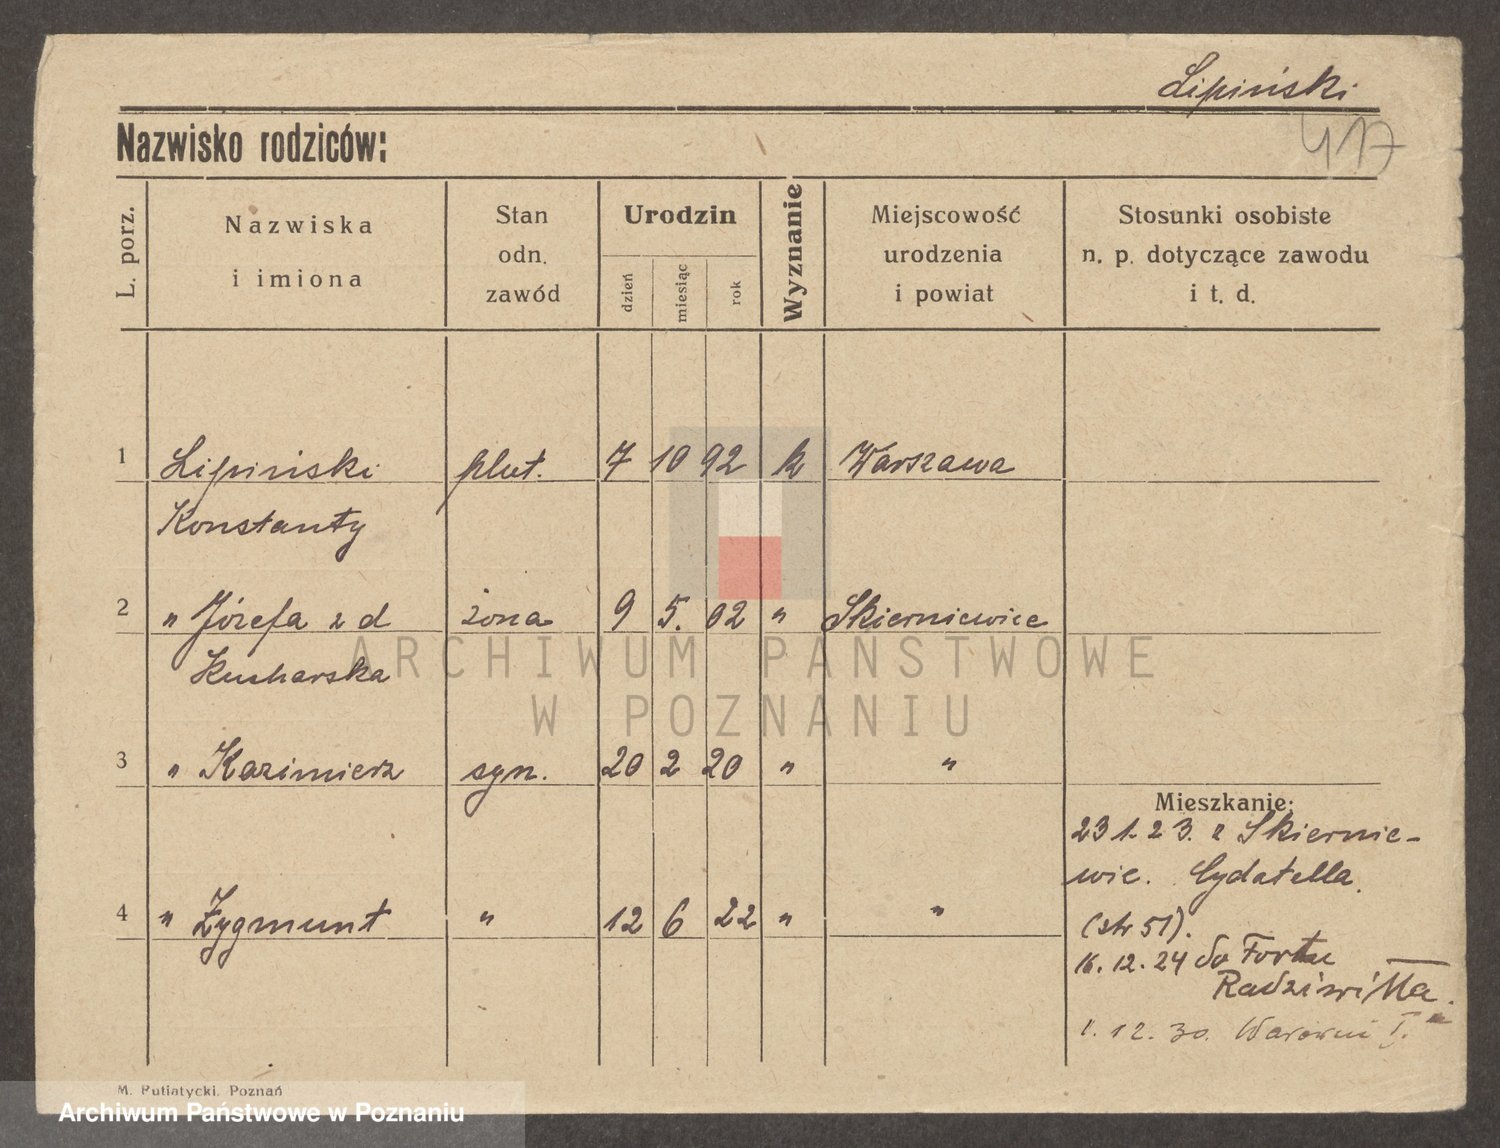 Lipiński
417
Nazwisko rodziców:
L. porz.
Nazwiska
i imiona
Stan
odn.
zawód
Urodzin
dzień
miesiąc
rok
Wyznanie
Miejscowość
urodzenia
i powiat
Stosunki osobiste
n. p. dotyczące zawodu
i t. d.
1 Lipiński plut. 7 10 92 k Warszawa
Konstanty
2 " Józefa z d żona 9 5. 02 " Skierniewice
Kucharska
3 " Kazimierz syn. 20 2 20 " "
Mieszkanie:
23 1. 23. z Skiernie-
wic. Cydatella.
4 " Zygmunt " 12 6 22 " "
(str 51).
16. 12. 24 do Fortu
Radziwiłła.
1. 12. 30. Warowni I.
ARCHIWUM PAŃSTWOWE
W POZNANIU
M. Putiatycki. Poznań
Archiwum Państwowe w Poznaniu